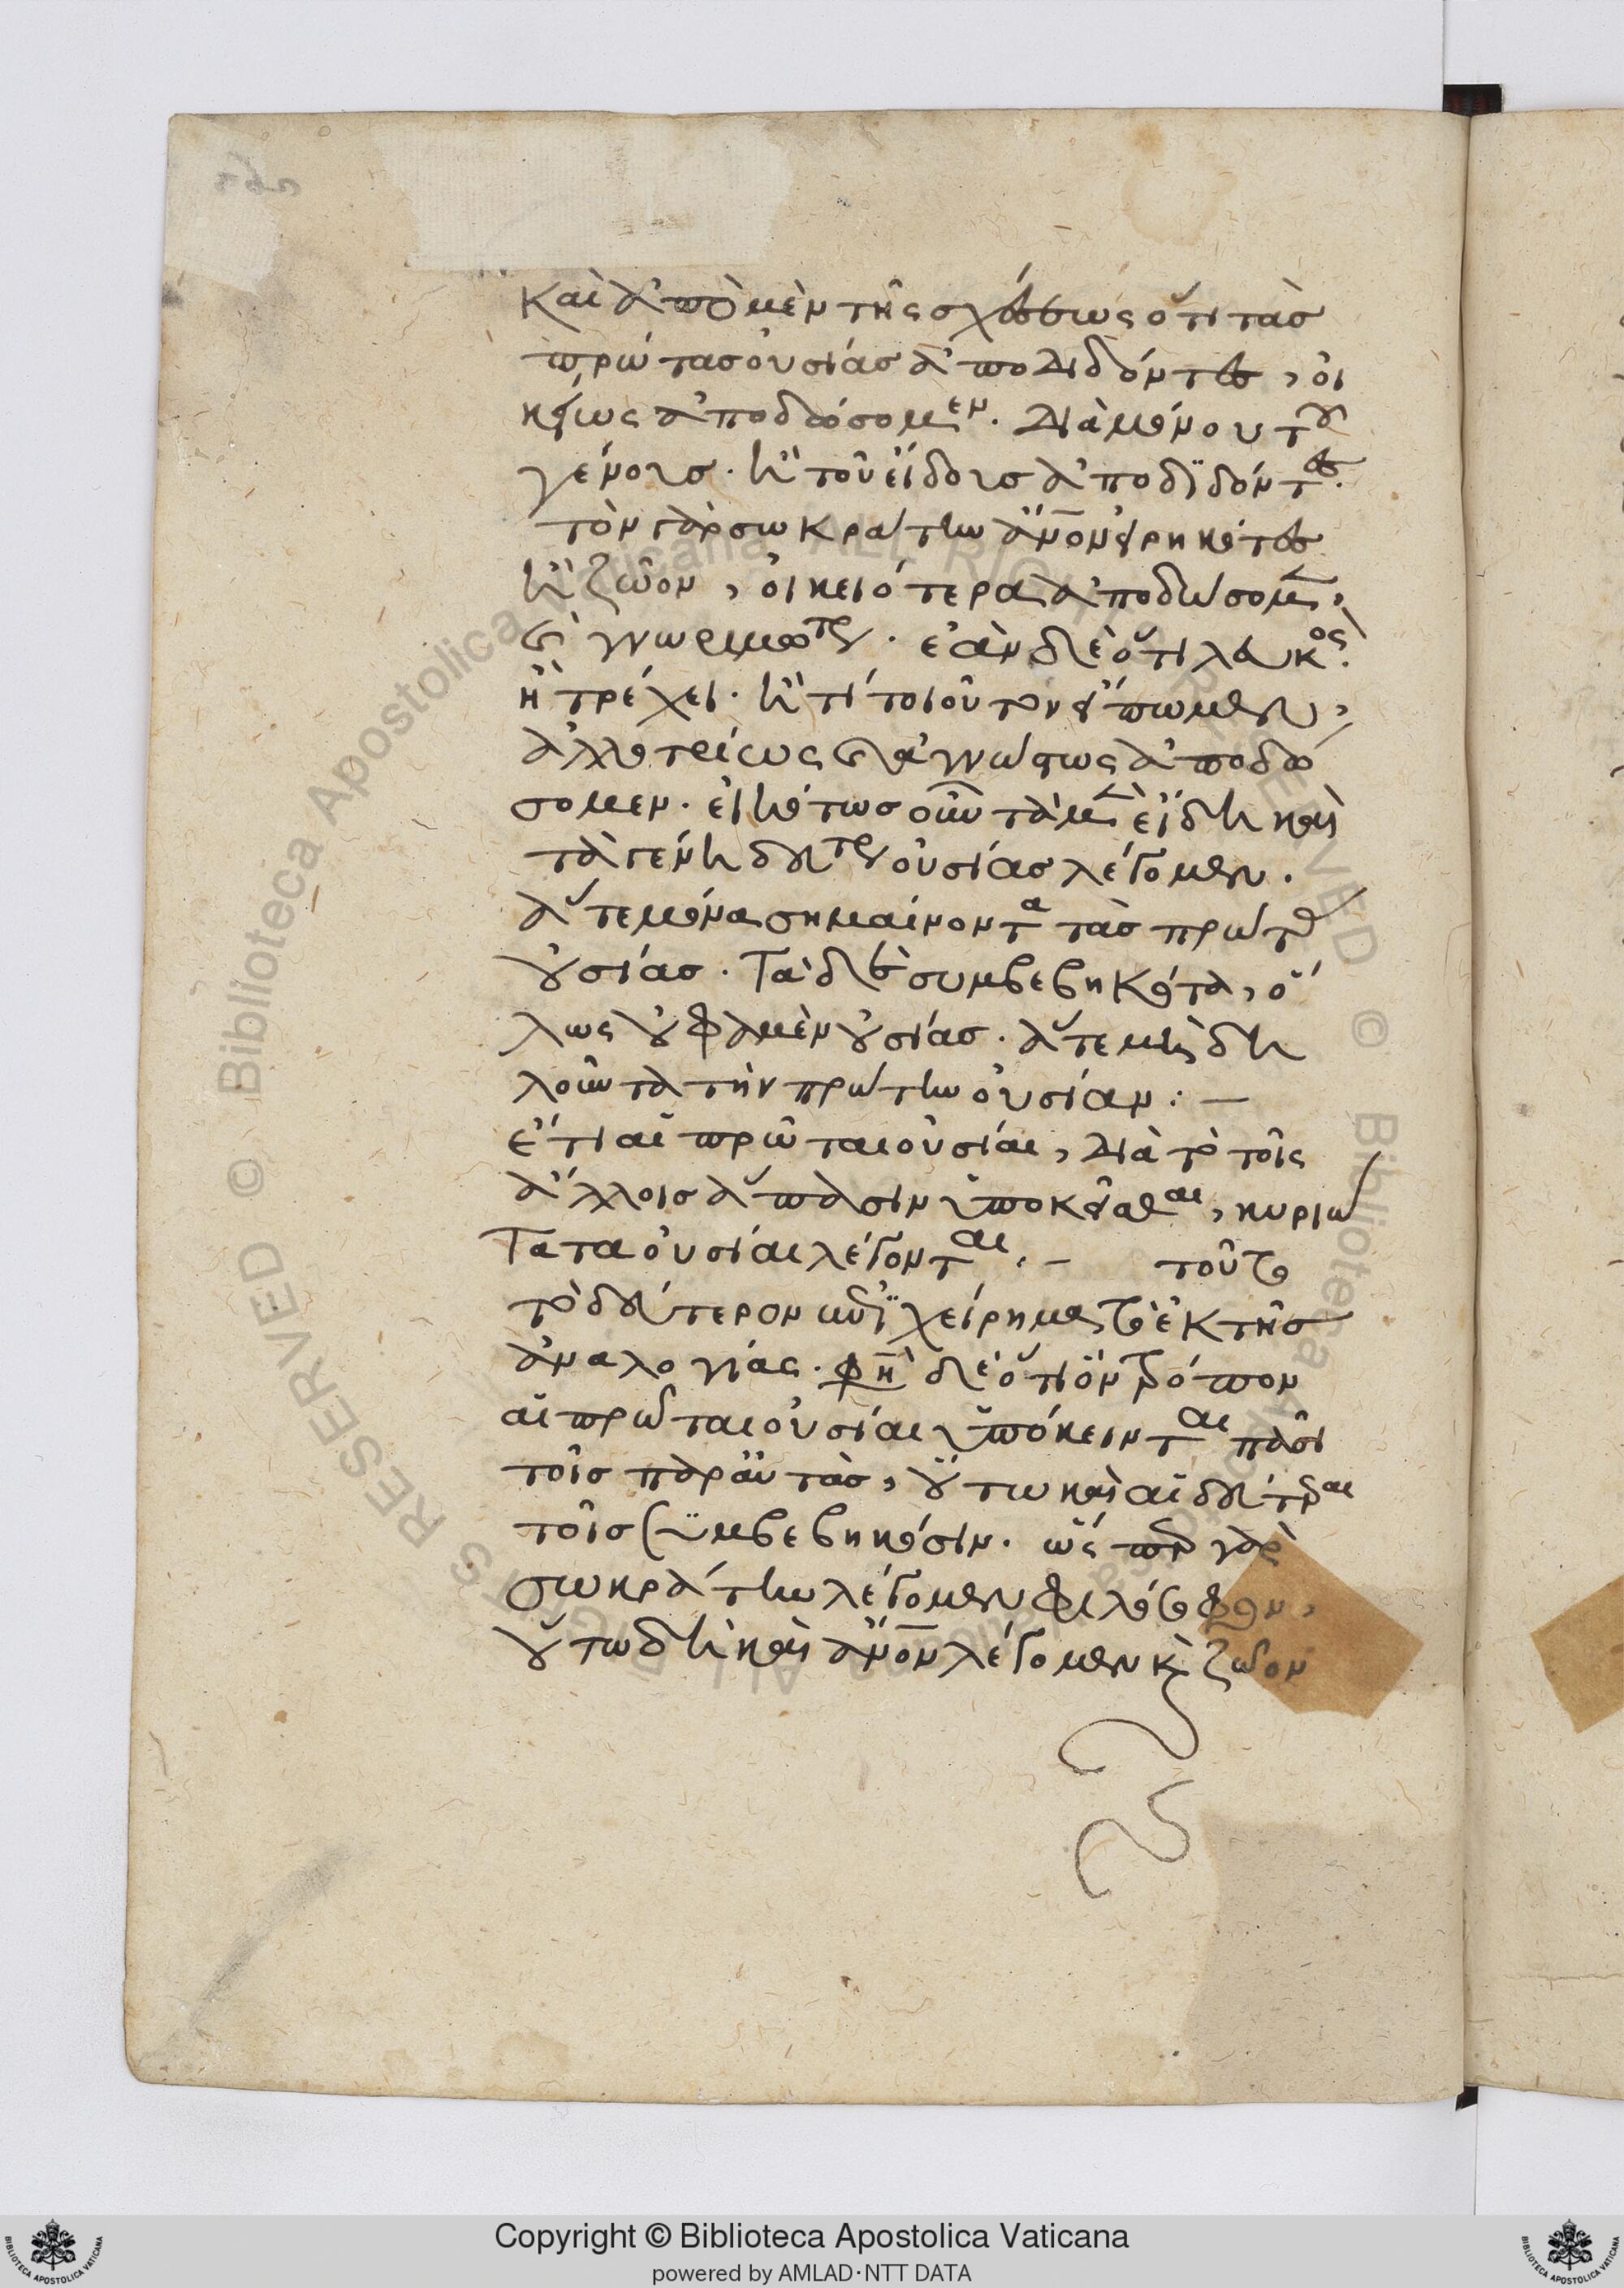 καὶ ἀπὸ μὲν τῆς σχέσεως ὅτι τὰς
πρώτας οὐσίας ἀποδιδόντες, οἰ
κείως ἀποδώσομεν. διὰ μόνου τοῦ
γένους. ἢ τοῦ εἴδους ἀποδιδόντες.
τὸν γὰρ σωκράτην ἄνον εἰρηκότες
ἢ ζῶον, οἰκειότερα ἀποδώσομεν,
καὶ γνωριμώτερον. ἐὰν δὲ ὅτι λευκός.
ἢ τρέχει. ἢ τί τοιοῦτον εἴπωμεν,
ἀλλοτρίως καὶ ἀγνώστως ἀποδώ
σομεν. εἰκότως οὖν τὰ μὲν εἴδη καὶ
τὰ γένη δευτέρας οὐσίας λέγομεν.
ἅτε μόνα σημαίνοντα τὰς πρώτας
οὐσίας. Τὰ δὲ συμβεβηκότα, ὅ
λως οὐ φαμὲν οὐσίας. ἅτε μὴ δη
λοῦντα τὴν πρώτην οὐσίαν: —
ἔτι αἱ πρῶται οὐσίαι, διὰ τὸ τοῖς
ἄλλοις ἅπασιν ὑποκεῖσθαι, κυριώ
Ταται οὐσίαι λέγονται. – τοῦτο
τὸ δεύτερον ἐπιχείρημα τὸ ἐκ τῆς
ἀναλογίας. φησὶ δὲ ὅτι ὃν τρόπον
αἱ πρῶται οὐσίαι ὑπόκεινται πᾶσι
τοῖς παρ αὐτὰς, οὕτω καὶ αἱ δεύτεραι
τοῖς συμβεβηκόσιν. ὥσπερ γὰρ
σωκράτην λέγομεν φιλόσοφον,
οὕτω δὴ καὶ ἄνον λέγομεν καὶ ζῶον
Copyright © Biblioteca Apostolica Vaticana
powered by AMLAD·NTT DATA